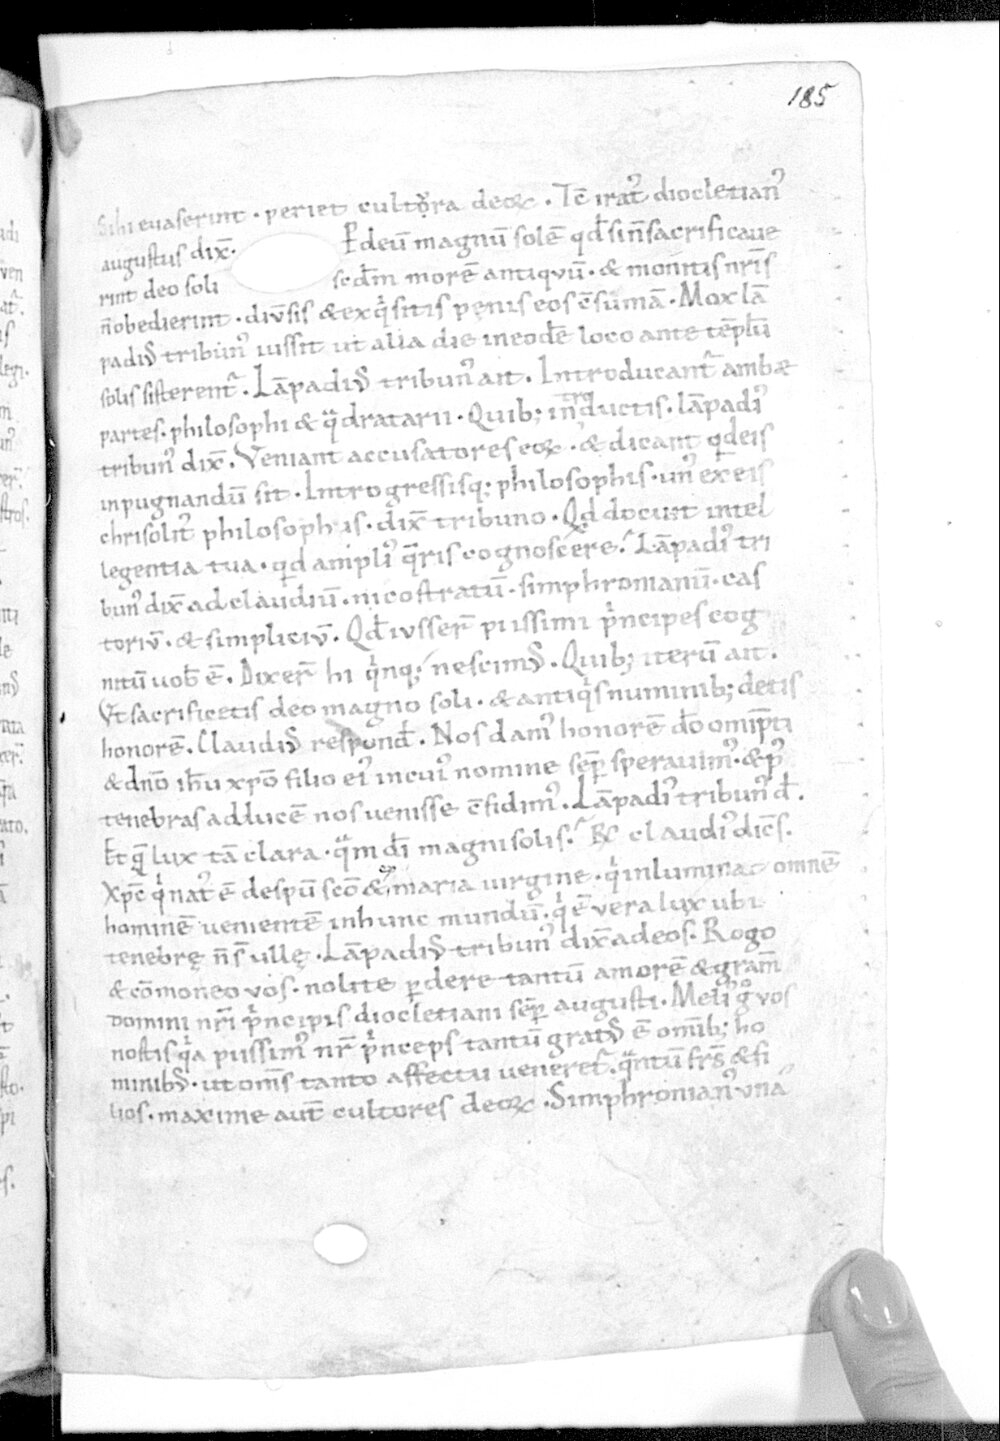 185
Sibi euaserint · periet cultọra deoꝝ · Tc̄ irat᷒ diocletian᷒
augustus dix̄ · P deū magnū solē qd̄ sin̄ sacrificaue
rint deo soli scd̄m morē antiqvū · & monitis nr̄is
n̄ obedierint · div̄sis & exq̇sitis penis eos c̄sumā · Mox lā
padiꝰ tribun᷒ iussit ut alia die in eodē loco ante tēplū
solis sisterent᷒ · Lāpadiꝰ tribun᷒ ait · Introducant᷒ ambæ
partes · philosophi & q̈dratarii · Quib; introductis · lāpadi᷒
tribun᷒ dix̄ · Veniant accusatores eoꝝ · & dicant qd eis
inpugnandū sit · Introgressisq; philosophis · un᷒ ex eis
chrisolit᷒ philosophus · dix̄ tribuno · Qd docuit intel
legentia tua · qid ampli᷒ q̄ris cognoscere · Lāpadi᷒ tri
bun᷒ dix̄ ad claudiū · nicostratū · simphronianū · cas
toriv̄ · & simpliciv̄ · Qd̄ ivsser̄ piissimi ṗncipes cog
nitū uob̄ ē · Dixer̄ hi q̇nq; nescimꝰ · Quib; iterū ait ·
Vt sacrificetis deo magno soli · & antiq̇s numinib; detis
honorē · Claudiꝰ respond̄ · Nos dam᷒ honorē dō omip̄ti
& dnō ih̄u xpō filio ei᷒ in cui᷒ nomine sēp speravim᷒ · & p᷒
tenebras ad lucē nos uenisse c̄fidim᷒ · Lāpadi᷒ tribun᷒ d̄ ·
Et q̄ lux tā clara · q̈m dī magni solis · R̄ claudi᷒ dicēs ·
Xpc̄ q̇ nat᷒ ē de spū scō & maria uirgine · q̇ inluminat omnē
hominē uenientē in hunc mundū · q̇ ē vera lux ubi
tenebrę n̄ s̄ ullę · Lāpadiꝰ tribun᷒ dix̄ ad eos · Rogo
& cōmoneo vos · nolite ꝑdere tantū amorē & gram̄
domini nr̄i ṗncipis diocletiani sēp augusti · Meli᷒ g̊ vos
nostis q̇a piissim᷒ nr̄ ṗnceps tantū gratꝰ ē omīb; ho
minibꝰ · ut om̄s tanto affectu ueneret᷒ · q̈ntū fr̄s & fi
lios · maxime aut̄ cultores deoꝝ · Simphronian᷒ · una